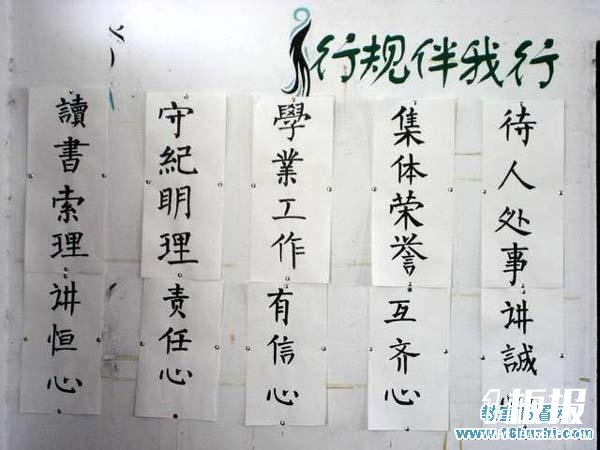 行规伴我行
待人处事讲誠
集体荣誉互齐心
學業工作有信心
守紀明理责任心
讀書索理讲恒心
板报